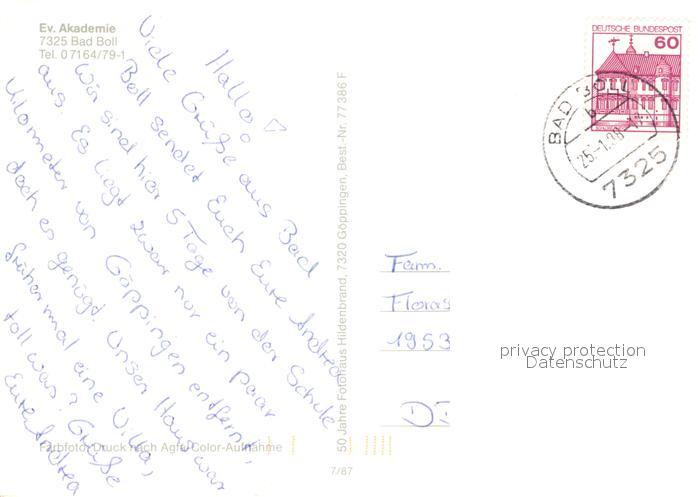 Ev. Akademie
7325 Bad Boll
Tel. 07164/79-1
Hallo
Viele Grüße aus Bad
Boll sendet Euch Eure Andrea
Wir sind hier 5 Tage von der Schule
aus. Es liegt zwar nur ein paar
Kilometer von Göppingen entfernt,
doch es genügt. Unser Haus war
früher mal eine Villa,
toll was? Grüße
Eure Andrea
Farbfoto: Druck nach Agfa-Color-Aufnahme
50 Jahre Fotohaus Hildenbrand, 7320 Göppingen, Best.-Nr. 77386 F
7/87
DEUTSCHE BUNDESPOST
60
BAD BOLL
b
25.-1.88
7325
Fam.
Floras
1953
privacy protection
Datenschutz